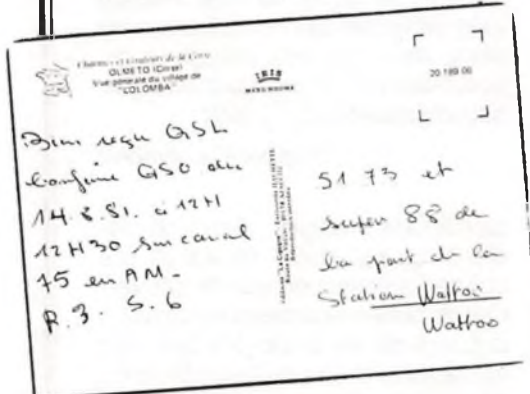 Charmes et Couleurs de la Corse
OLMETO (Corse)
Vue générale du village de
"COLOMBA"
IRIS
20 189 06
Bien reçu QSL
Confirme QSO du
14.8.81. à 12H
12H30 sur canal
15 en AM -
R.3. S.6
51 73 et
super 88 de
la part de la
Station Wattoo
Wattoo